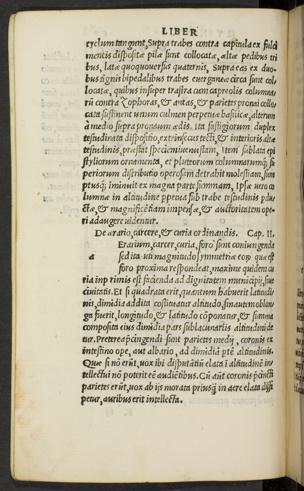 LIBER
euclum tangent. Supra trabes contra capitula ex fulci
mentis dispositæ pilæ sunt collocatæ, altæ pedibus tri
bus, latæ quoquouersus quaternis, Supra eas ex duo-
bus tignis bipedalibus trabes euerganeæ circa sunt col-
locatæ, quibus insuper trāstra cum capreolis columna-
rū contra zophoras, & antas, & parietes pronai collo-
cata sustinent unum culmen perpetuæ basilicæ, alterum
à medio supra pronaum ædis. Ita fastigiorum duplex
testudinata dispositio, extrinsecus tecti, & interioris altæ
testudinis, præstat speciem uenustam, item sublata epi
styliorum ornamenta, et pluteorum columnarumq́; su
periorum distributio operosam detrahit molestiam, sum
ptusq́; imminuit ex magna parte summam, Ipsæ uero co
lumnæ in altitudine ppetua sub trabe testudinis pdu-
ctæ, & magnificētiam impensæ, & auctoritatem ope-
ri adaugere uidentur.
De ærario, carcere, & curia ordinandis. Cap. II.
Erarium, carcer, curia, foro sunt coniungenda
a sed ita uti magnitudo symmetriæ eorū quæ est
foro proxima respondeat, maxime quidem cu
ria inprimis est facienda ad dignitatem municipij, siue
ciuitatis. Et si quadrata erit, quantum habuerit latitudi
nis, dimidia addita costituatur altitudo, sin autem oblon
ga fuerit, longitudo, & latitudo cōponatur, & summa
composita eius dimidia pars sub lacunarijs altitudini de
tur. Preterea pcingendi sunt parietes medij, coronis ex
intestino ope, aut albario, ad dimidiā ptē altitudinis.
Quæ si nō erūt, uox ibi disputātiū elata ī altitudinē in
tellectui nō poterit eē audiētibus. Cū aūt coronis pcīncti
parietes erūt, uox ab ijs morata priusq̄ in aere elata dissi
petur, auribus erit intellecta.